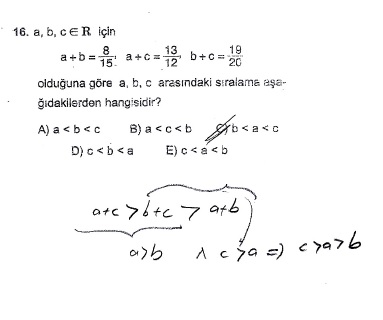 16. a, b, c ∈ R için
a+b = 8/15, a+c = 13/12, b+c = 19/20
olduğuna göre a, b, c arasındaki sıralama aşa-
ğıdakilerden hangisidir?
A) a < b < c B) a < c < b C) b < a < c
D) c < b < a E) c < a < b
a+c > b+c > a+b
a>b ∧ c>a => c>a>b